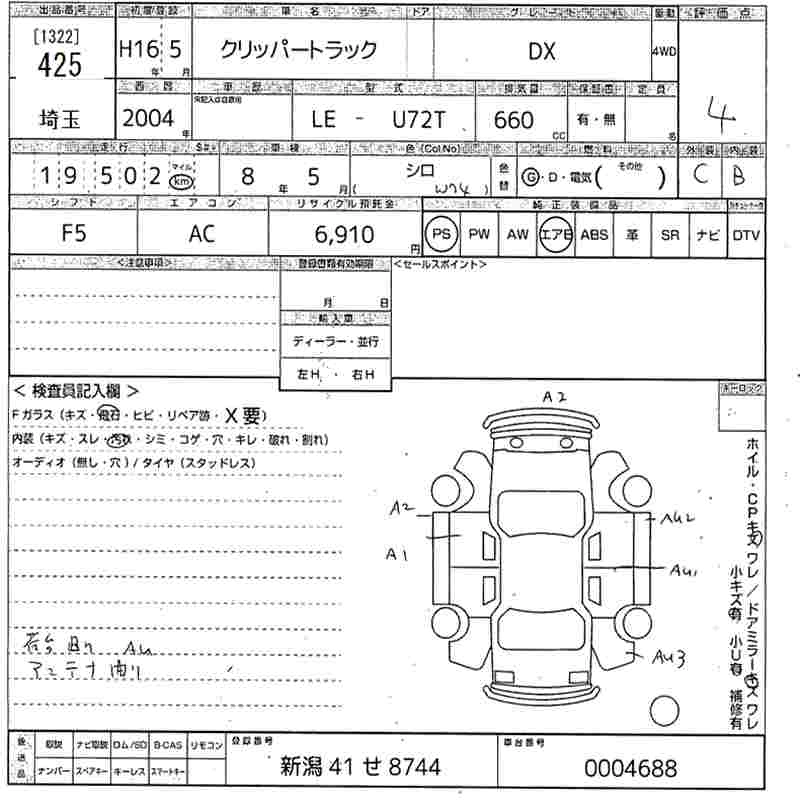 出品番号 初度登録 車名 ドア グレード 駆動 評価点
[1322]
425 H16 5 クリッパートラック DX 4WD 4
年 月
西暦 車歴 型式 排気量 保証書 定員
埼玉 2004 年 LE - U72T 660 CC 有・無 名
走行 車検 色(Col.No) 燃料 外装 内装
19,502 マイル km 8 年 5 月 シロ ( W74 ) 色替 G・D・電気( その他 ) C B
シフト エアコン リサイクル預託金 純正装備品
F5 AC 6,910 円 PS PW AW エアB ABS 革 SR ナビ DTV
<注意事項> 登録書類有効期限 <セールスポイント>
月 日
輸入車
ディーラー・並行
左H ・ 右H
< 検査員記入欄 >
Fガラス (キズ・飛石・ヒビ・リペア跡・X要)
内装 (キズ・スレ・汚れ・シミ・コゲ・穴・キレ・破れ・割れ)
オーディオ (無し・穴) / タイヤ (スタッドレス)
A2
A2 AU2
A1 AU1
AU3
AU
アンテナ
ホイル・CPキズワレ/ドアミラーキズワレ
小キズ有 小U有 補修有
後送品 取説 ナビ取説 ロム/SD B-CAS リモコン 登録番号 車台番号
ナンバー スペアキー キーレス スマートキー 新潟 41 せ 8744 0004688